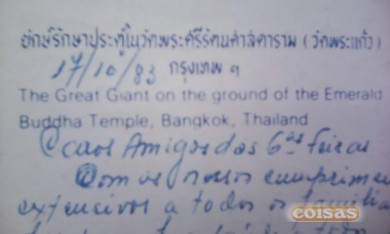 ยักษ์รักษาประตูในวัดพระศรีรัตนศาสดาราม (วัดพระแก้ว)
17/10/83 กรุงเทพ ฯ
The Great Giant on the ground of the Emerald
Buddha Temple, Bangkok, Thailand
Caros Amigos das 6as feiras
Com os nossos cumprimen
extensivos a todos os
coisas